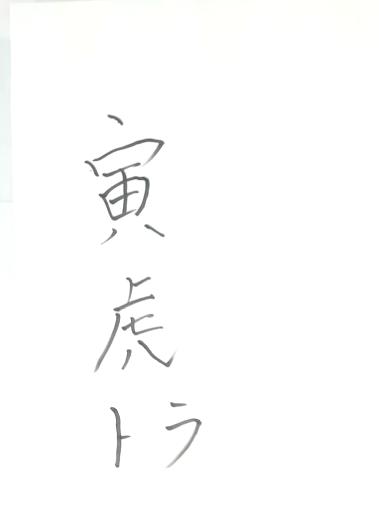 寅
虎
トラ